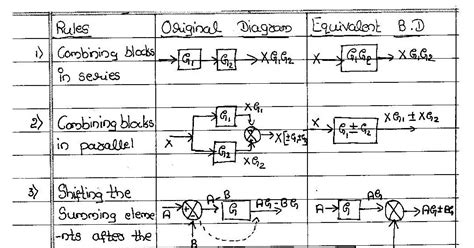 Rules Original Diagram Equivalent B.D
1) Combining blocks in series
G1 G2 X G1G2
X G1G2 X G1G2
2) Combining blocks in parallel
X G1 XG1
G2 XG2
X G1 ± G2 XG1 ± XG2
3) Shifting the
Summing eleme
-nts after the
A A-B G AG-BG
B
A G AG AG±BG